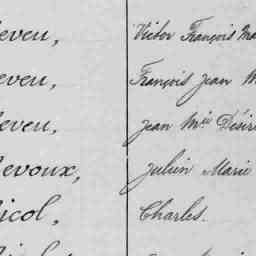 eveu, Victor François Ma
eveu, François Jean M
eveu, Jean Mie Désir
evoux, Julien Marie
icol, Charles.